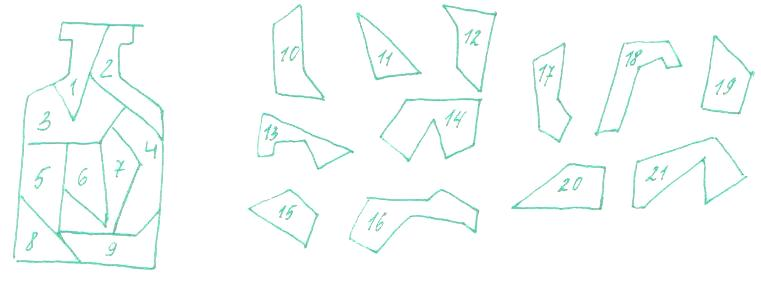 1 2
3 4
5 6 7
8 9
10 11 12
13 14
15 16
17 18 19
20 21